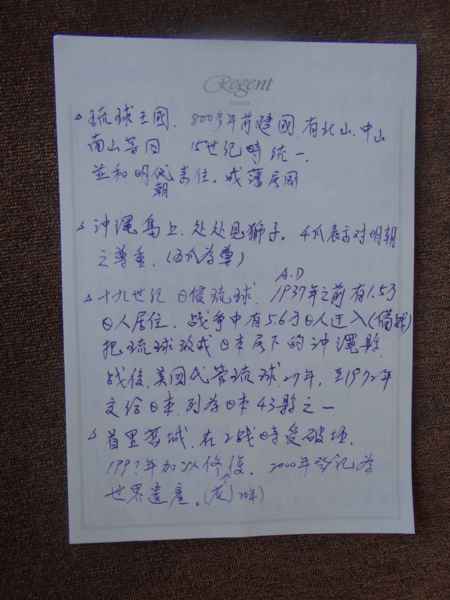 Regent
琉球王國. 800多年前建國 有北山. 中山
南山等国 15世紀時統一.
並和明代 朝 責任. 成藩屬國
沖繩島上. 处处見獅子. 4爪表示对明朝
之尊重. (五爪為尊)
A.D
十九世紀 日侵琉球. 1937年之前有1.5万
日人居住. 战争中有5.6万日人迁入(備战)
把琉球改成日本屬下的沖繩縣.
战後. 美國代管琉球27年. 至1972年
交给日本 列為日本43縣之一
首里 城. 在2战時受破坏.
199 年加以修復. 2000年登記為
世界遺產. (龙)